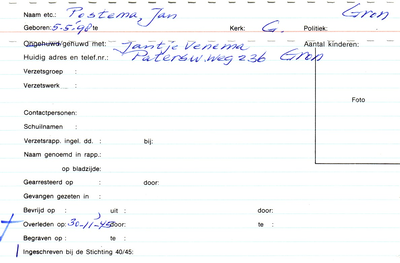 Gron
Naam etc.: Postema, Jan
Geboren: 5-5-'98 te Kerk: G. Politiek:
Ongehuwd/gehuwd met: Jantje Venema Aantal kinderen:
Huidig adres en telef.nr.: Patersw.weg 236 Gron
Verzetsgroep :
Verzetswerk :
Foto
Contactpersonen:
Schuilnamen :
Verzetsrapp. ingel. dd. : bij:
Naam genoemd in rapp.:
op bladzijde:
Gearresteerd op : door:
Gevangen gezeten in :
Bevrijd op : uit : door:
Overleden op: 30-11-'45 door: te :
Begraven op : te :
Ingeschreven bij de Stichting 40/45: